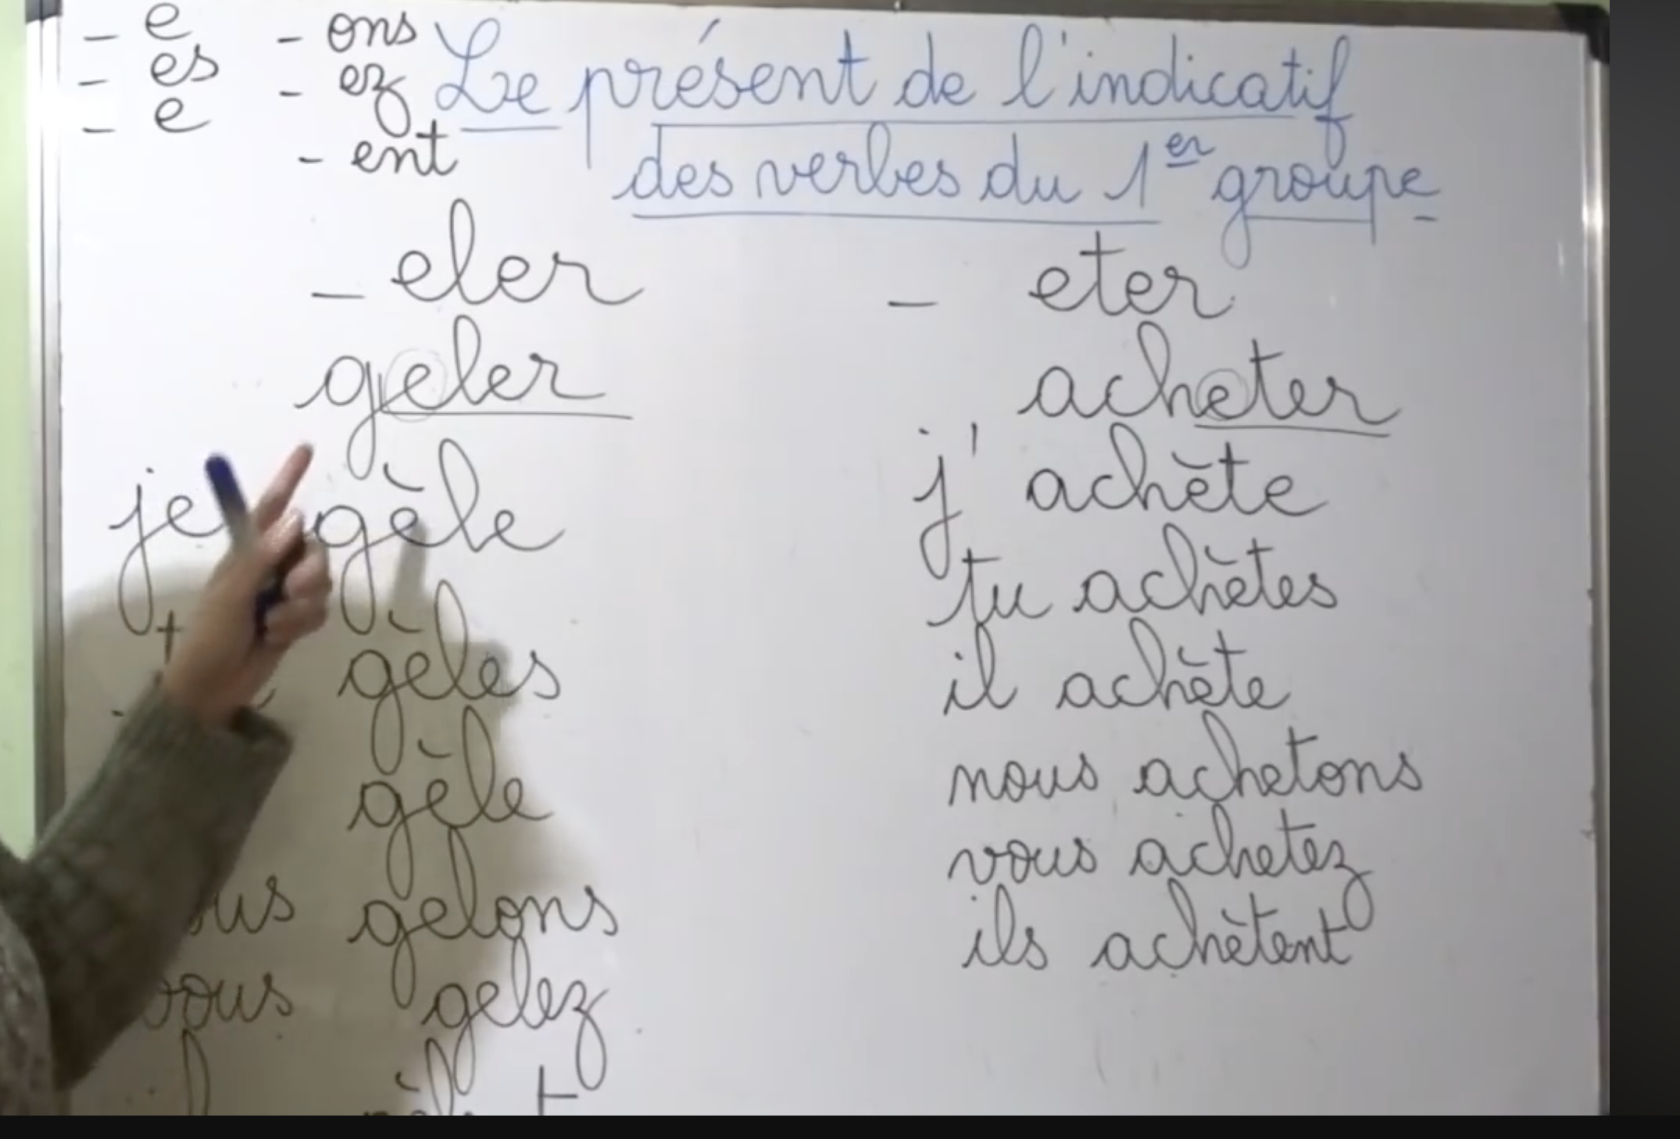 - e
- es
- e
- ons
- ez
- ent
Le présent de l'indicatif
des verbes du 1er groupe
- eler
geler
je gèle
gèles
gèle
gelons
vous gelez
- eter
acheter
j' achète
tu achètes
il achète
nous achetons
vous achetez
ils achètent